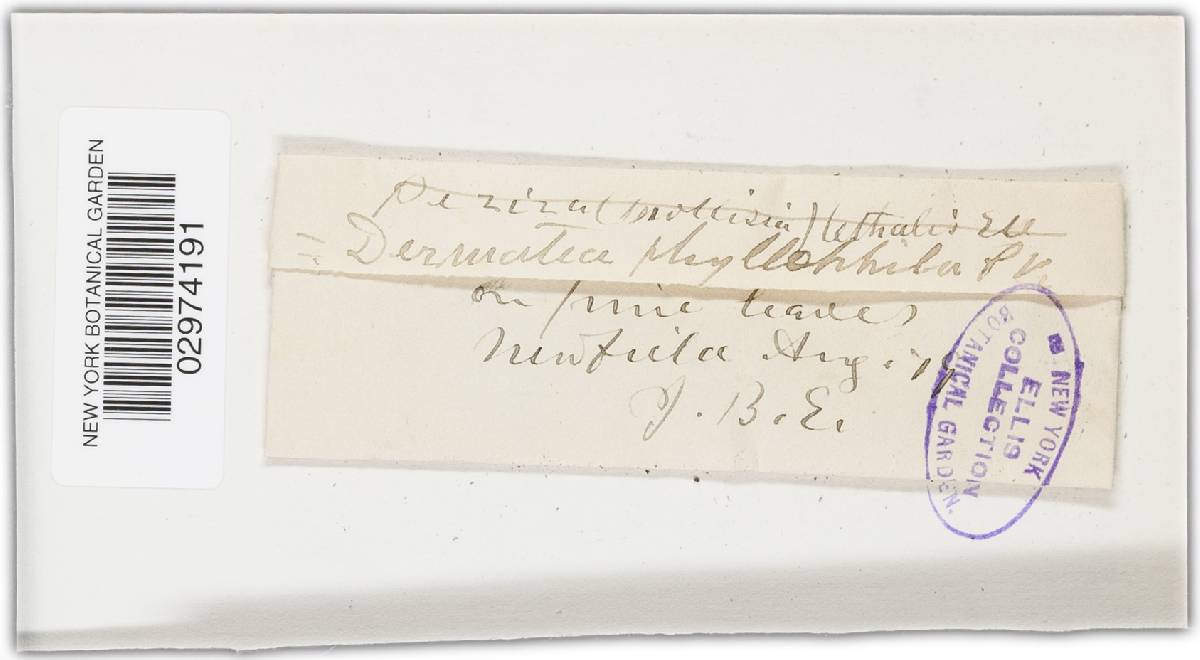 NEW YORK BOTANICAL GARDEN
02974191
Peziza (Mollisia) lethalis Ell
= Dermatea phyllophila Pk
on pine leaves
Newfield Aug. '79
J. B. E.
NEW YORK
ELLIS
COLLECTION
BOTANICAL GARDEN.